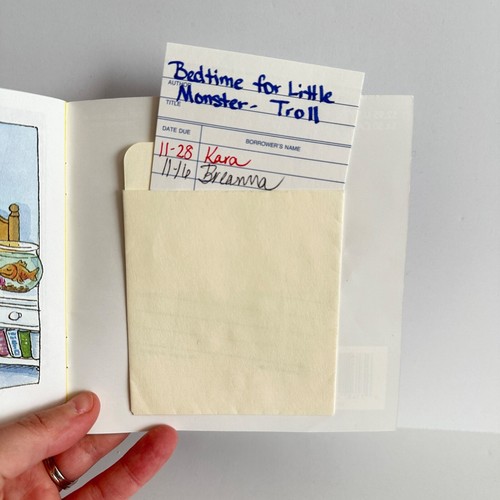 Bedtime for Little
AUTHOR
Monster- Troll
TITLE
DATE DUE BORROWER'S NAME
11-28 Kara
11-16 Breanna